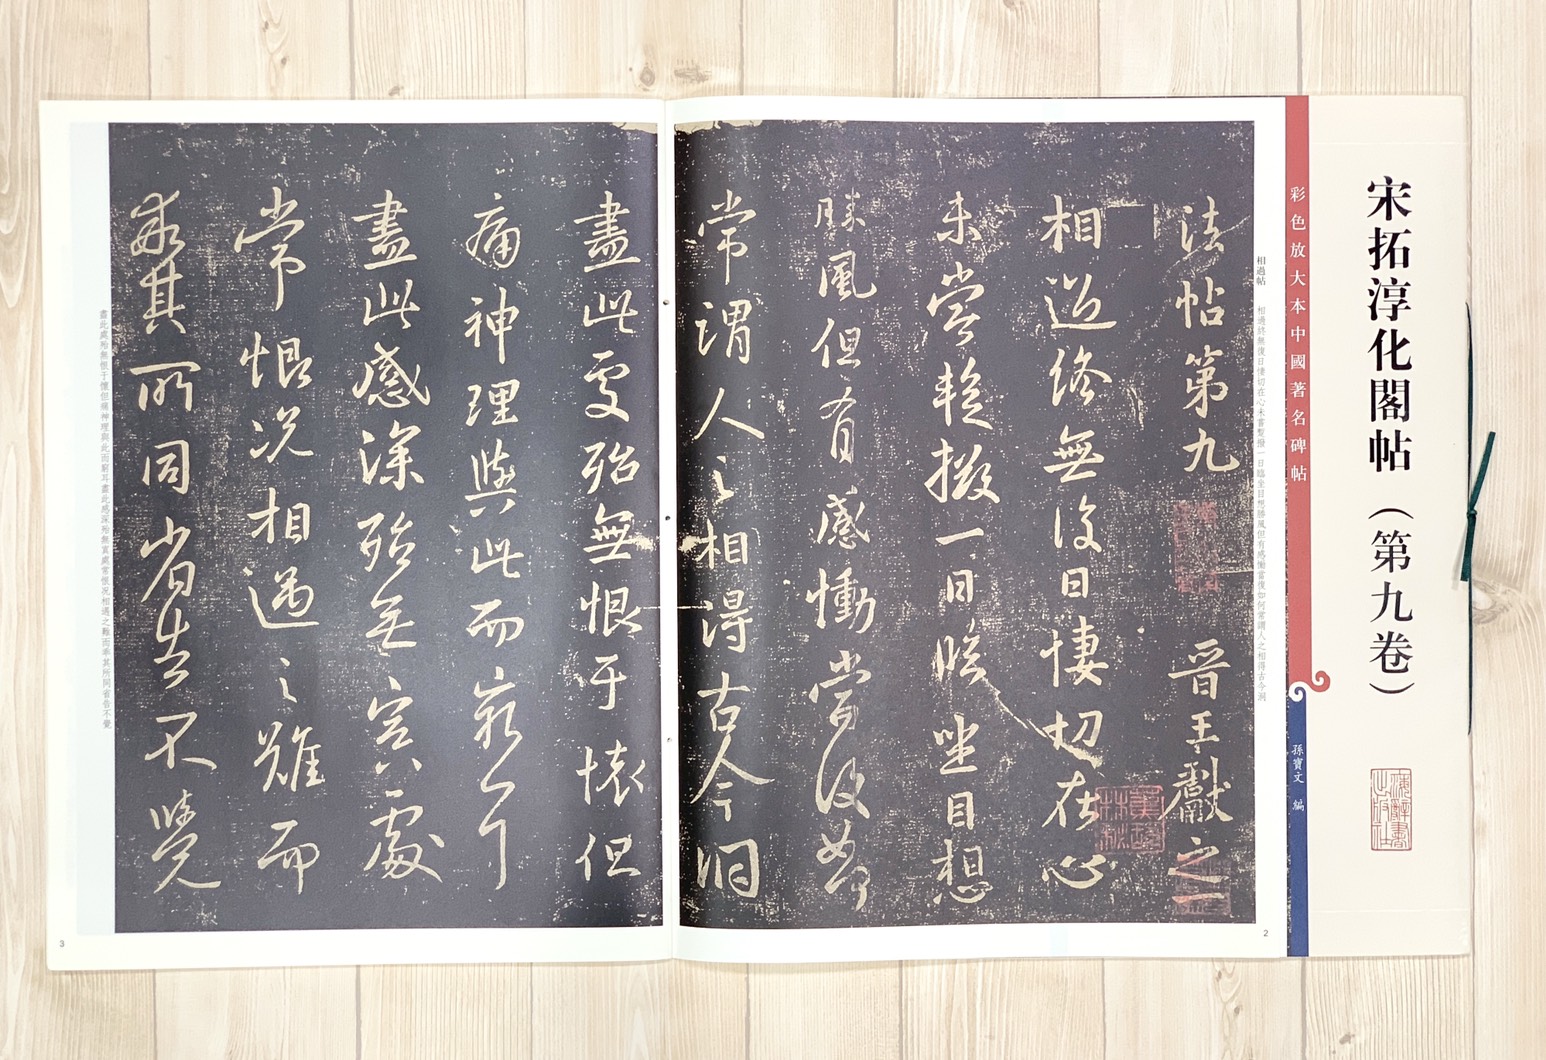 宋拓淳化閣帖（第九卷）
彩色放大本中國著名碑帖
孫寶文 編
海辭書出版社
相過帖 相過終無復日悽切在心未嘗暫撥一日臨坐目想勝風但有感慟當復如何常謂人之相得古今洞
法帖第九 晉王獻之一
相過終無復日悽切在心
未嘗暫撥一日臨坐目想
勝風但有感慟當復如何
常謂人之相得古今洞
2
盡此處殆無恨于懷但
痛神理與此而窮耳
盡此感深殆無冥處
常恨況相遇之難而
乖其所同省告不覺
盡此處殆無恨于懷但痛神理與此而窮耳盡此感深殆無冥處常恨況相遇之難而乖其所同省告不覺
3